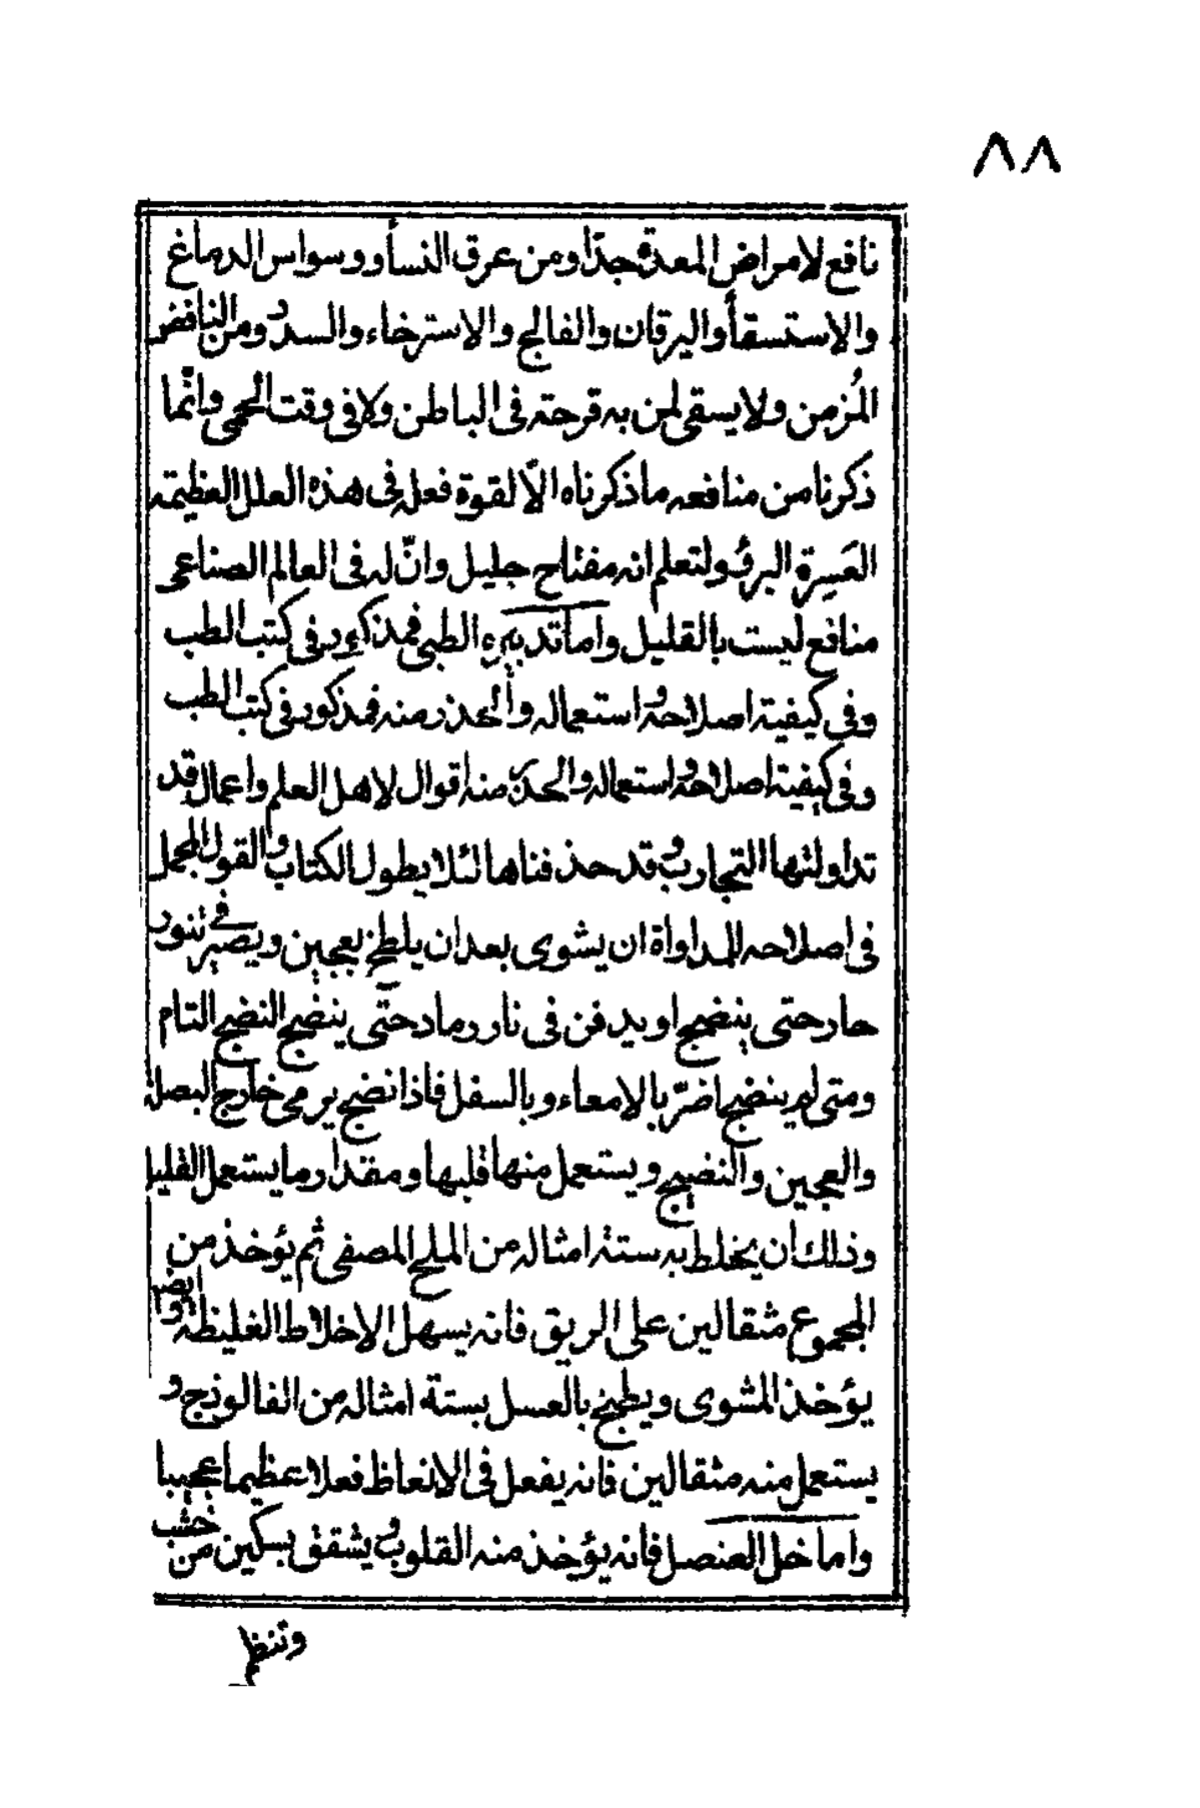 ٨٨
نافع لامراض المعدة جدّا ومن عرق النسأ ووسواس الدماغ
والاستسقأ واليرقان والفالج والاسترخاء والسدد ومن النافض
المُزمن ولا يسقى لمن به قرحة فى الباطن ولا فى وقت الحمى وانّما
ذكرنا من منافعه ما ذكرناه الّا لقوة فعله فى هذه العلل العظيمة
العَسِرة البرؤ ولتعلم انه مفتاح جليل وانّ له فى العالم الصناعى
منافع ليست بالقليل واما تدبيره الطبى فمذكور فى كتب الطب
وفى كيفية اصلاحه واستعماله والحذر منه فمذكور فى كتب الطب
وفى كيفية اصلاحه واستعماله والحذر منه اقوال لاهل العلم واعمال قد
تداولتها التجارب وقد حذفناها لئلا يطول الكتاب والقول المجمل
فى اصلاحه للمداواة ان يشوى بعد ان يلطخ بعجين ويصير فى تنور
حار حتى ينضج او يدفن فى نار رماد حتّى ينضج النضج التام
ومتى لم ينضج اضرّ بالامعاء وبالسفل فاذا نضج يرمى خارج البصلة
والعجين والنضيج ويستعمل منها قلبها ومقدار ما يستعمل القليل
وذلك ان يخلط به ستة امثاله من الملح المصفى ثم يؤخذ من
المجموع مثقالين على الريق فانه يسهل الاخلاط الغليظة وايضا
يؤخذ المشوى ويطبخ بالعسل بستة امثاله من الفالوذج و
يستعمل منه مثقالين فانه يفعل فى الانعاظ فعلا عظيما عجيبا
واما خل العنصل فانه يؤخذ منه القلوب ويشقق بسكين من خشب
وتنظم